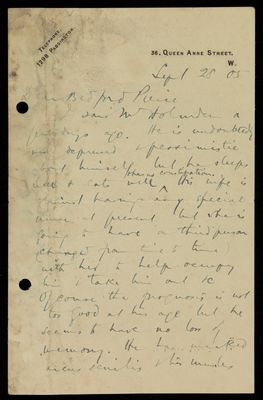 TELEPHONE
1298 PADDINGTON
36, QUEEN ANNE STREET.
W.
Sept 28 05
Dear Bedford Pierce
I saw Mr Holmden a
few days ago. He is undoubtedly
depressed & pessimistic
about himself but he sleeps
well & eats well & has no constipation. His wife is
against having any special
nurse at present but she is
going to have a third person
changed from time to time
with her to help occupy
him & take him out &c
Of course the prognosis is not
too good at his age but he
seems to have no loss of
memory. He has marked
arcus senilis & his